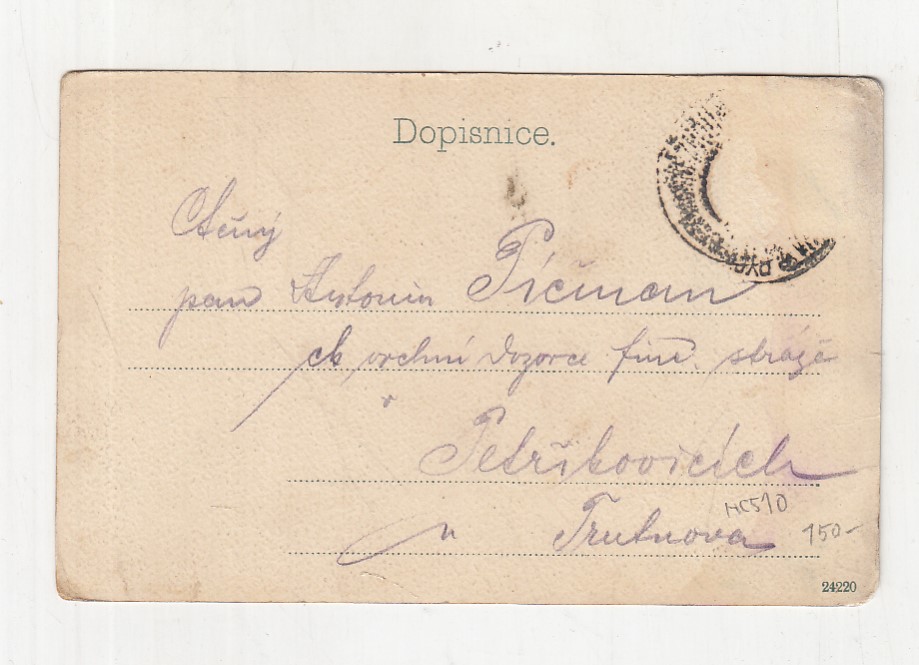 Dopisnice.
Ctěný
pan Antonín Píčman
ck vrchní dozorce fin. stráže
v
Petříkovicích
u Trutnova
HC510
150-
24220